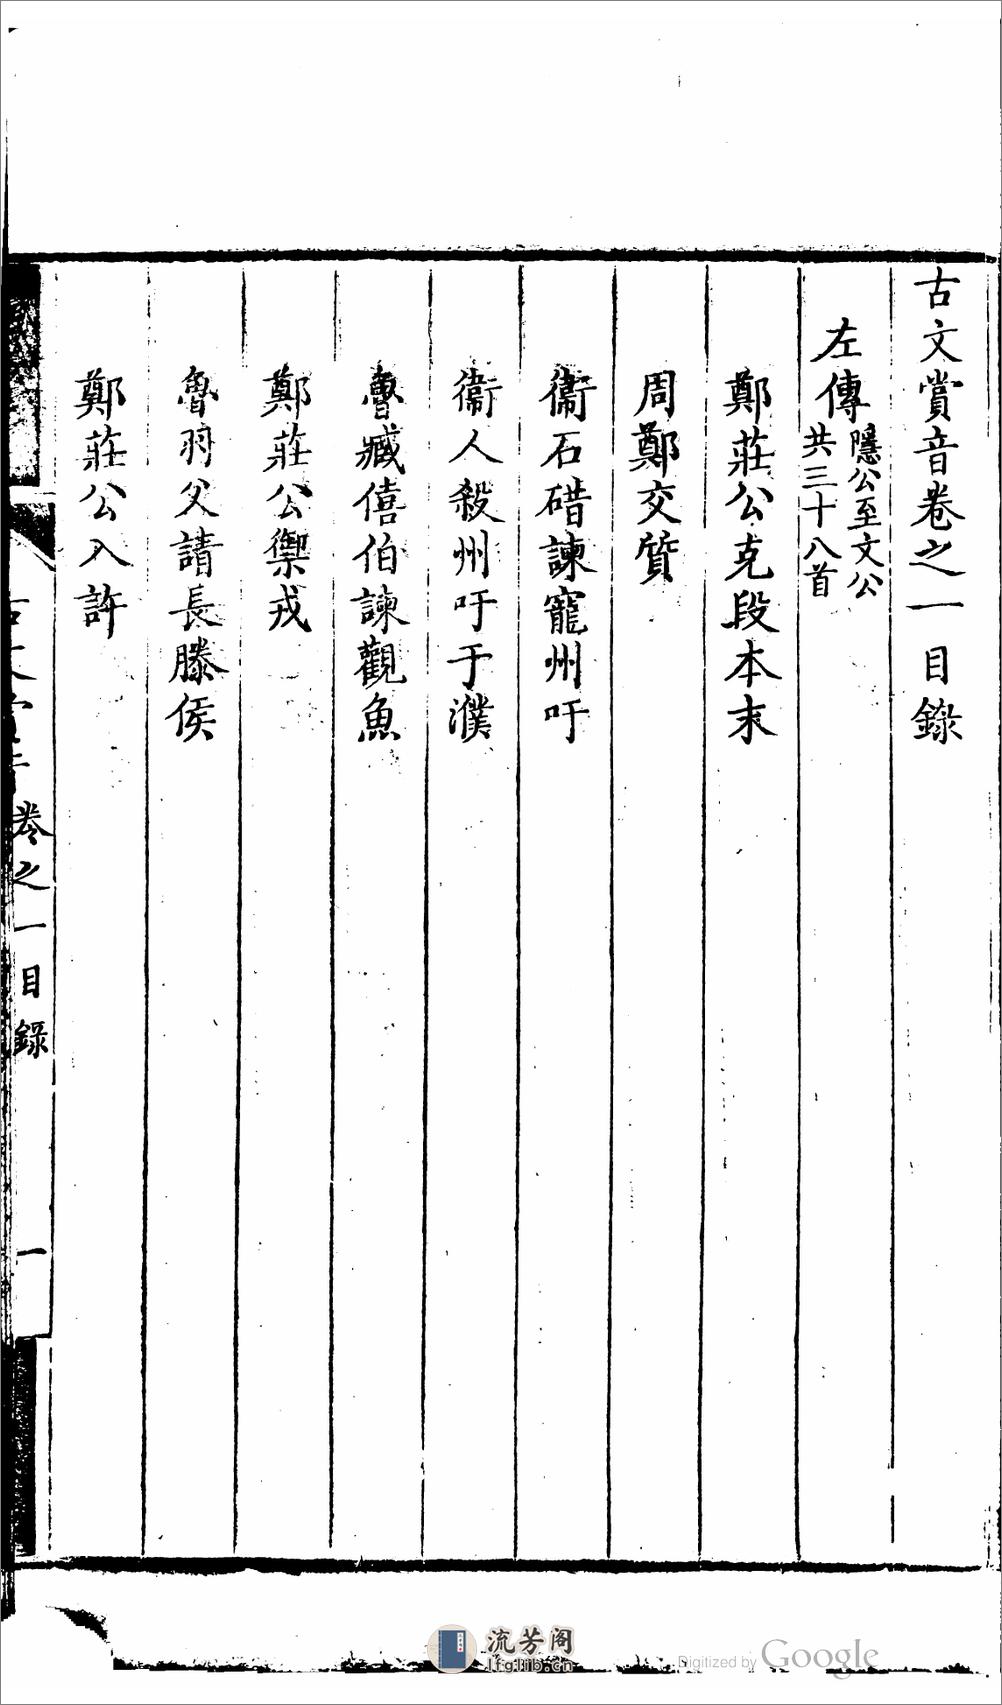 古文賞音卷之一目錄
左傳
隱公至文公
共三十八首
鄭莊公克段本末
周鄭交質
衞石碏諫寵州吁
衞人殺州吁于濮
魯臧僖伯諫觀魚
鄭莊公禦戎
魯羽父請長滕侯
鄭莊公入許
古文賞音卷之一目錄
一
流芳阁
lfglib.cn
Digitized by Google